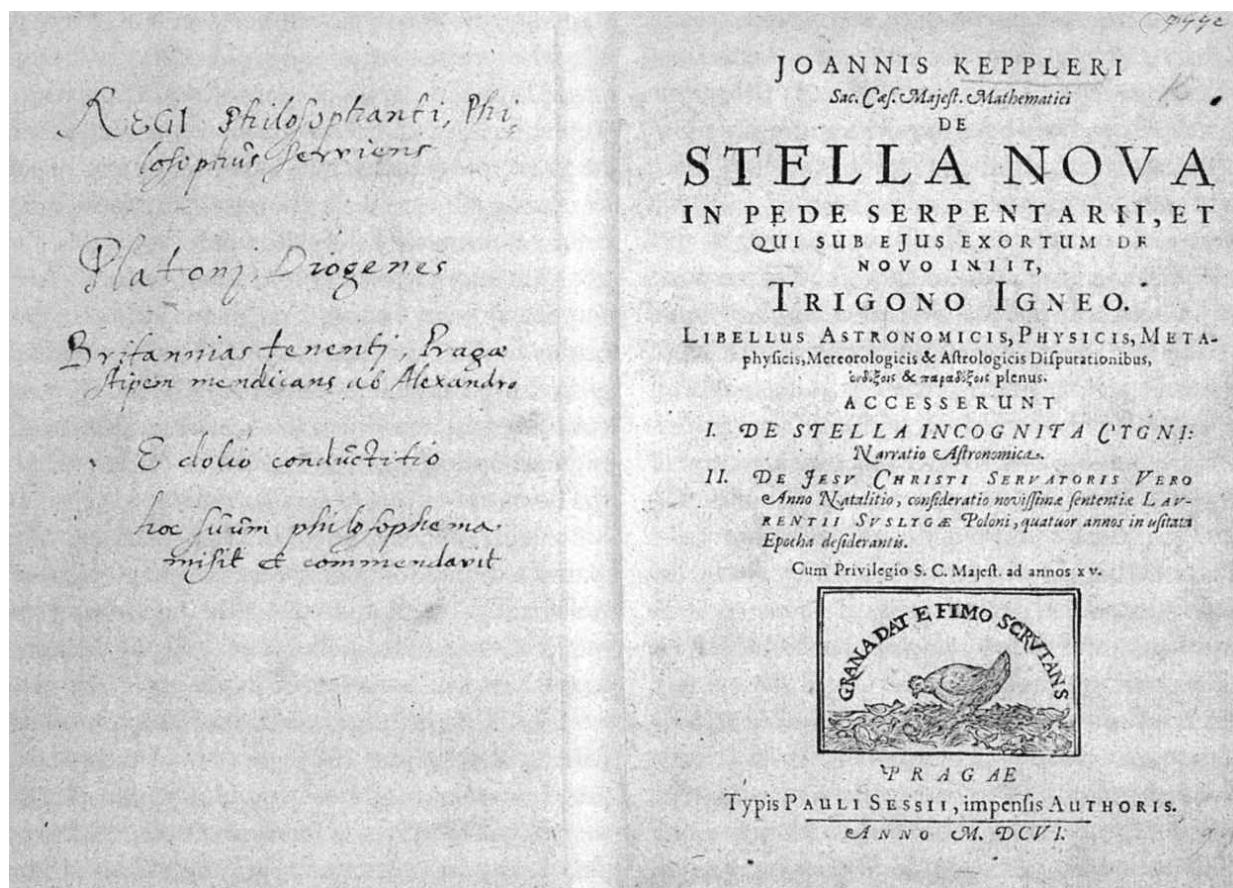 REGI Philosophanti, Phi,
losophus serviens
Platonj Diogenes
Britannias tenentj, Pragæ
stipem mendicans ab Alexandro
E dolio conductitio
hoc suum philosophema
misit et commendavit
JOANNIS KEPPLERI
Sac. Cæs. Majest. Mathematici
DE
STELLA NOVA
IN PEDE SERPENTARII, ET
QUI SUB EJUS EXORTUM DE
NOVO INIIT,
TRIGONO IGNEO.
LIBELLUS ASTRONOMICIS, PHYSICIS, META-
physicis, Meteorologicis & Astrologicis Disputationibus,
ἐνδόξοις & παραδόξοις plenus.
ACCESSERUNT
I. DE STELLA INCOGNITA CYGNI:
Narratio Astronomica.
II. DE JESU CHRISTI SERVATORIS VERO
Anno Natalitio, consideratio novissimæ sententiæ LAU-
RENTII SUSLYGÆ Poloni, quatuor annos in usitata
Epocha desiderantis.
Cum Privilegio S. C. Majest. ad annos xv.
GRANA DAT E FIMO SCRVTANS
PRAGAE
Typis PAULI SESSII, impensis AUTHORIS.
ANNO M. DCVI.